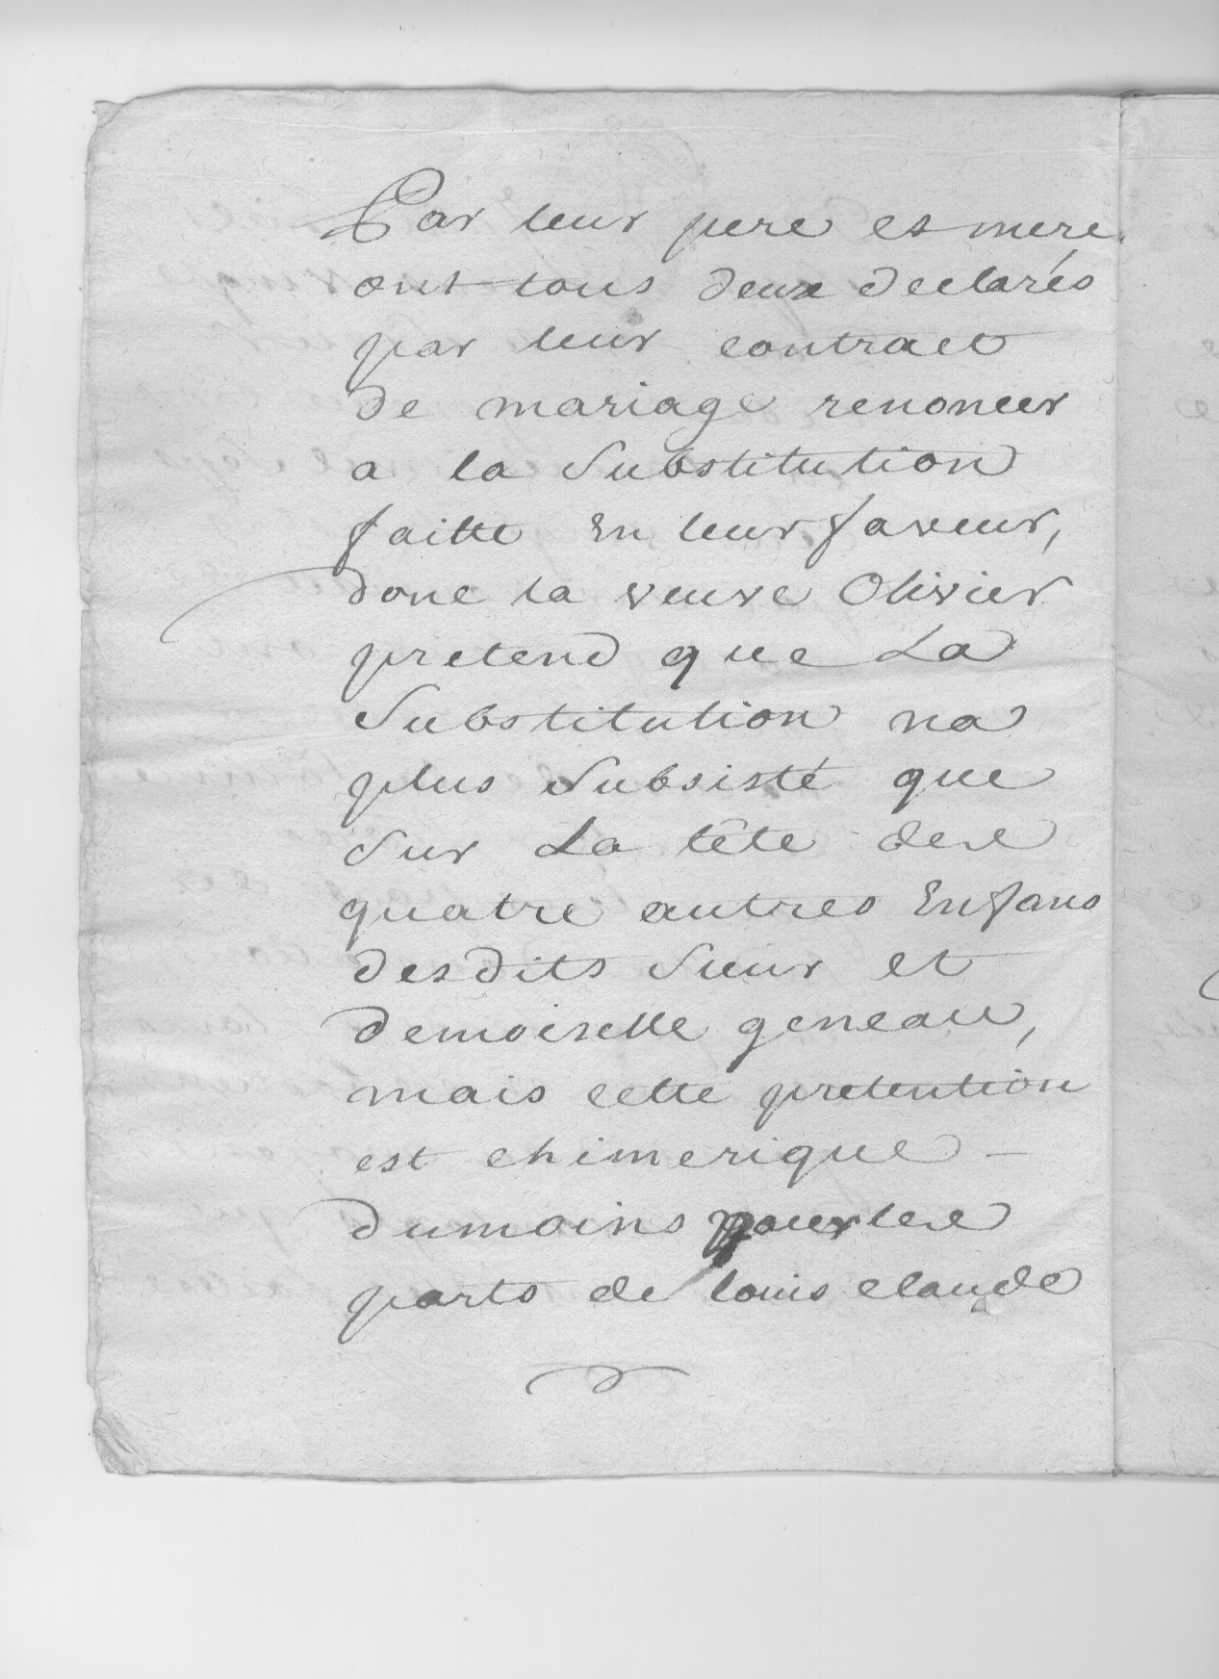 Par leur pere et mere
ont tous deux declarés
par leur contract
de mariage renoncer
a la Substitution
faitte En leur faveur,
donc la veuve Olivier
pretend que La
Substitution na
plus Subsisté que
Sur La tête des
quatre autres Enfans
desdits Sieur et
demoiselle geneau,
mais cette pretention
est chimerique –
dumoins pour les
parts de louis claude